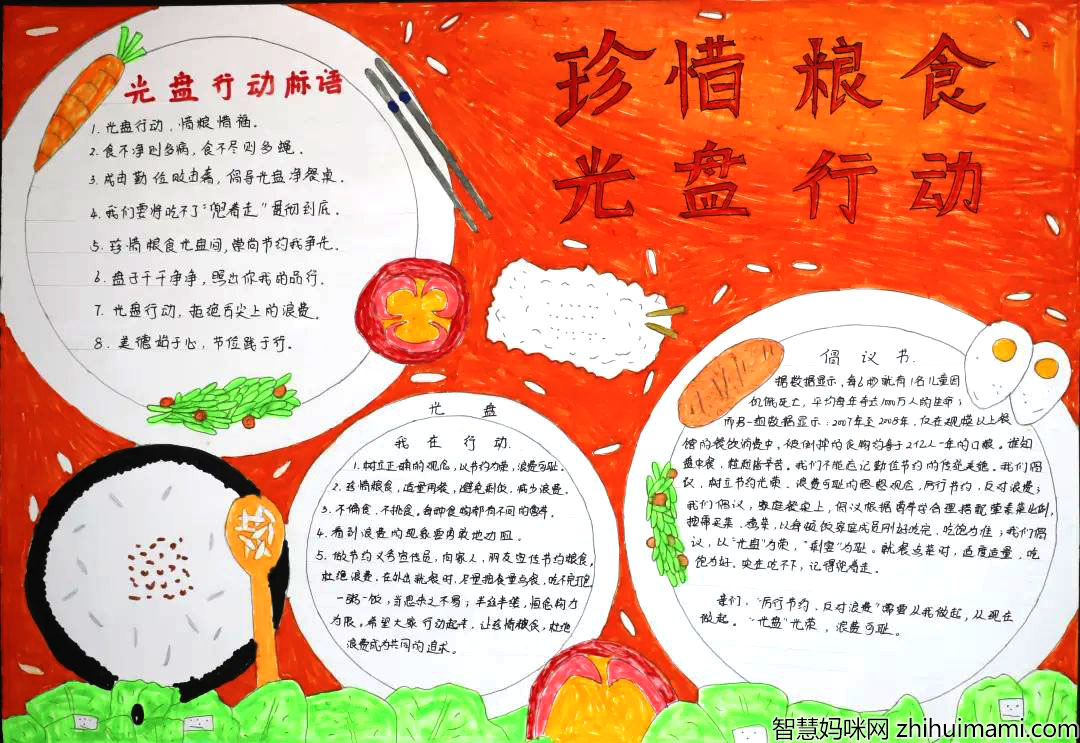 珍惜粮食
光盘行动
光盘行动标语
1. 光盘行动，惜粮惜福。
2. 食不净则多病，食不尽则多蝇。
3. 成由勤俭败由奢，倡导光盘净餐桌。
4. 我们要将吃不了“兜着走”贯彻到底。
5. 珍惜粮食光盘间，崇尚节约我争先。
6. 盘子干干净净，照出你我的品行。
7. 光盘行动，拒绝舌尖上的浪费。
8. 美德始于心，节俭践于行。
光 盘
我 在 行 动
1. 树立正确的观念，以节约为荣，浪费可耻。
2. 珍惜粮食，适量用餐，避免剩饭，减少浪费。
3. 不偏食，不挑食。每种食物都有不同的营养。
4. 看到浪费的现象要勇敢地力阻。
5. 做节约义务宣传员，向家人，朋友宣传节约粮食，
杜绝浪费，在外出就餐时，尽量按食量点餐，吃不完打包
一粥一饭，当思来之不易；半丝半缕，恒念物力
为艰。希望大家行动起来，让珍惜粮食，杜绝
浪费成为共同的追求。
倡 议 书
据数据显示，每6秒就有1名儿童因
饥饿死亡，平均每年夺去1000万人的生命；
而另一组数据显示：2007年至2008年，仅在规模以上餐
馆的餐饮消费中，便倒掉的食物约等于2亿人一年的口粮。谁知
盘中餐，粒粒皆辛苦。我们不能忘记勤俭节约的传统美德。我们倡
议，树立节约光荣、浪费可耻的思想观念，厉行节约，反对浪费；
我们倡议，家庭餐桌上，倡议依据营养学合理搭配荤素菜比例，
按需买菜、烧菜，以每顿饭家庭成员刚好吃完、吃饱为准；我们倡
议，以“光盘”为荣，“剩宴”为耻。就餐点菜时，适度适量，吃
饱为好。实在吃不下，记得兜着走。
亲们，“厉行节约、反对浪费”需要从我做起，从现在
做起。“光盘”光荣，浪费可耻。
智慧妈咪网 zhihuimami.com